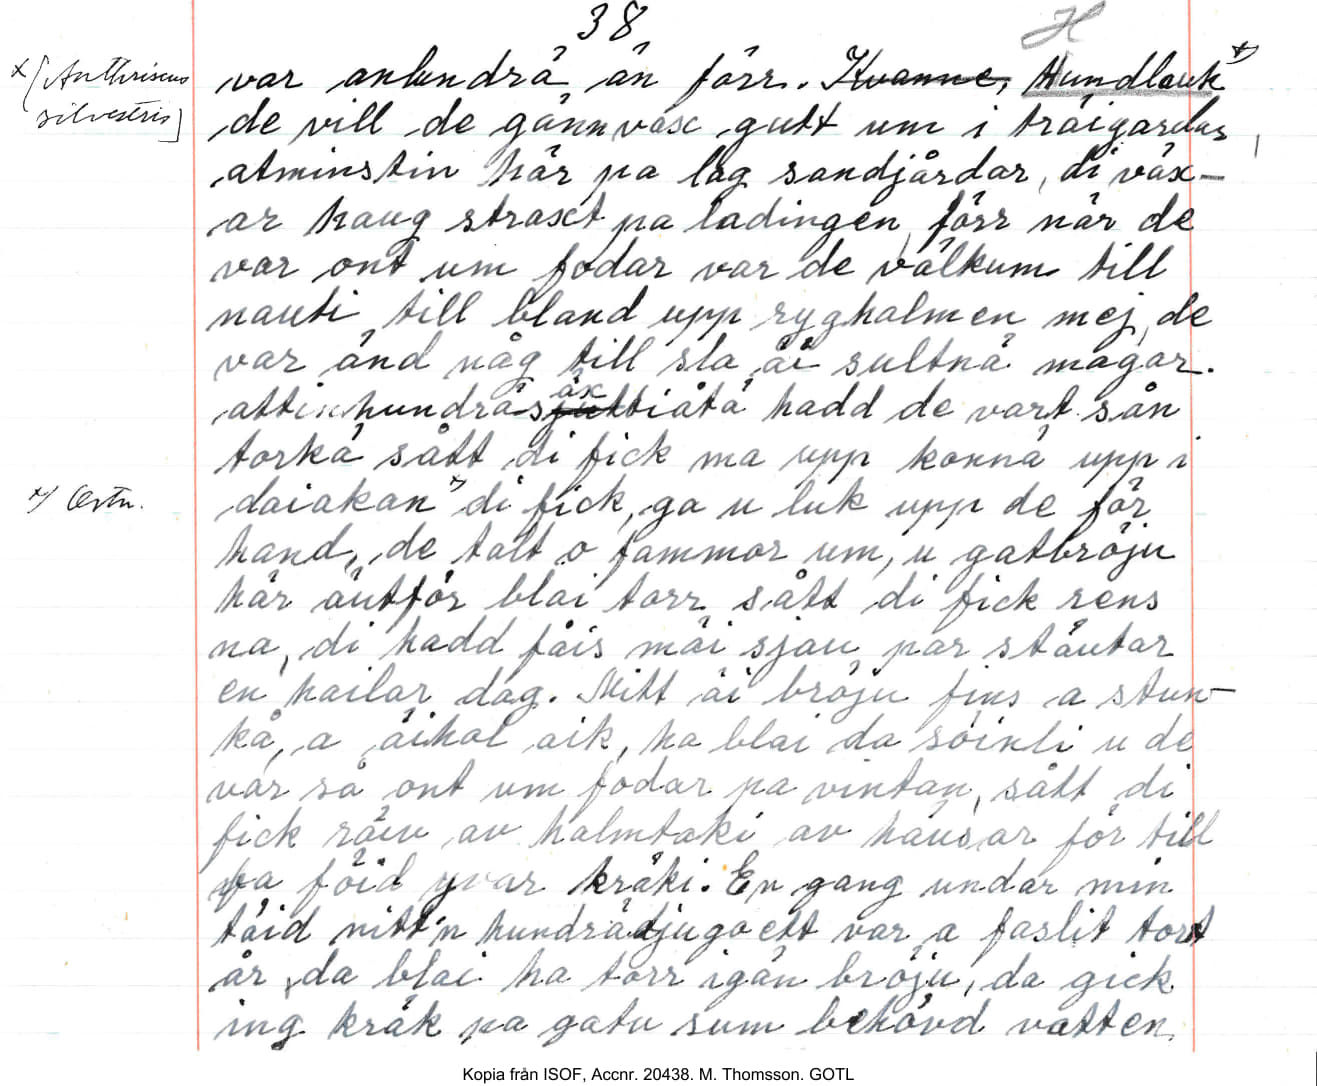 38
H
x [Anthriscus
silvestris]
var anlundrä än förr. Kvanne, Hundlauk x)
de vill de gännväsc gutt um i träigardar
atminstin här pa lag sandjårdar, di väx-
ar haug straxt pa ladingen, förr när de
var ont um fodar var de välkum till
nauti till bland upp ryghalmen mej, de
var änd någ till sla äi sultnä magar.
attinhundräsäxttiåtä hadd de vart sån
torkä sått di fick ma upp konnä upp i
x) Östn.
daiakan x) di fick ga u luk upp de för
hand, de talt o fammor um, u gatbröju
här äutför blai torr sått di fick rens
na, di hadd fäis mäi sjau par stäutar
en hailar dag. Mitt äi bröju fins a stun-
kå, a äihol aik, ha blai da söinli u de
var så ont um fodar pa vintan, sått di
fick räiv av halmtaki av häusar för till
fa föid yvar kräki. En gang undar min
täid nittn hundrädjugoett var a faslit tort
år, da blai ha torr igän bröju, da gick
ing kräk pa gatu sum behövd vatten.
Kopia från ISOF, Accnr. 20438. M. Thomsson. GOTL